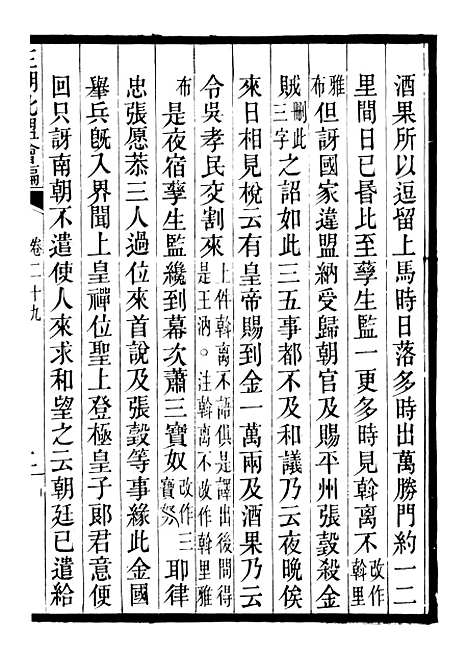 酒果所以逗留上馬時日落多時出萬勝門約一二
里間日已昏比至孳生監一更多時見斡离不改作斡里
雅布但訝國家違盟納受歸朝官及賜平州張瑴殺金
賊刪此三字之詔如此三五事都不及和議乃云夜晚俟
來日相見梲云有皇帝賜到金一萬兩及酒果乃云
令吳孝民交割來上件斡离不語俱是譯出後問得是王汭○注斡离不改作斡里雅
布是夜宿孳生監纔到幕次蕭三寶奴改作三寶努耶律
忠張愿恭三人過位來首說及張瑴等事緣此金國
舉兵旣入界聞上皇禪位聖上登極皇子郞君意便
回只訝南朝不遣使人來求和望之云朝廷已遣給
三朝北盟會編
卷二十九
二